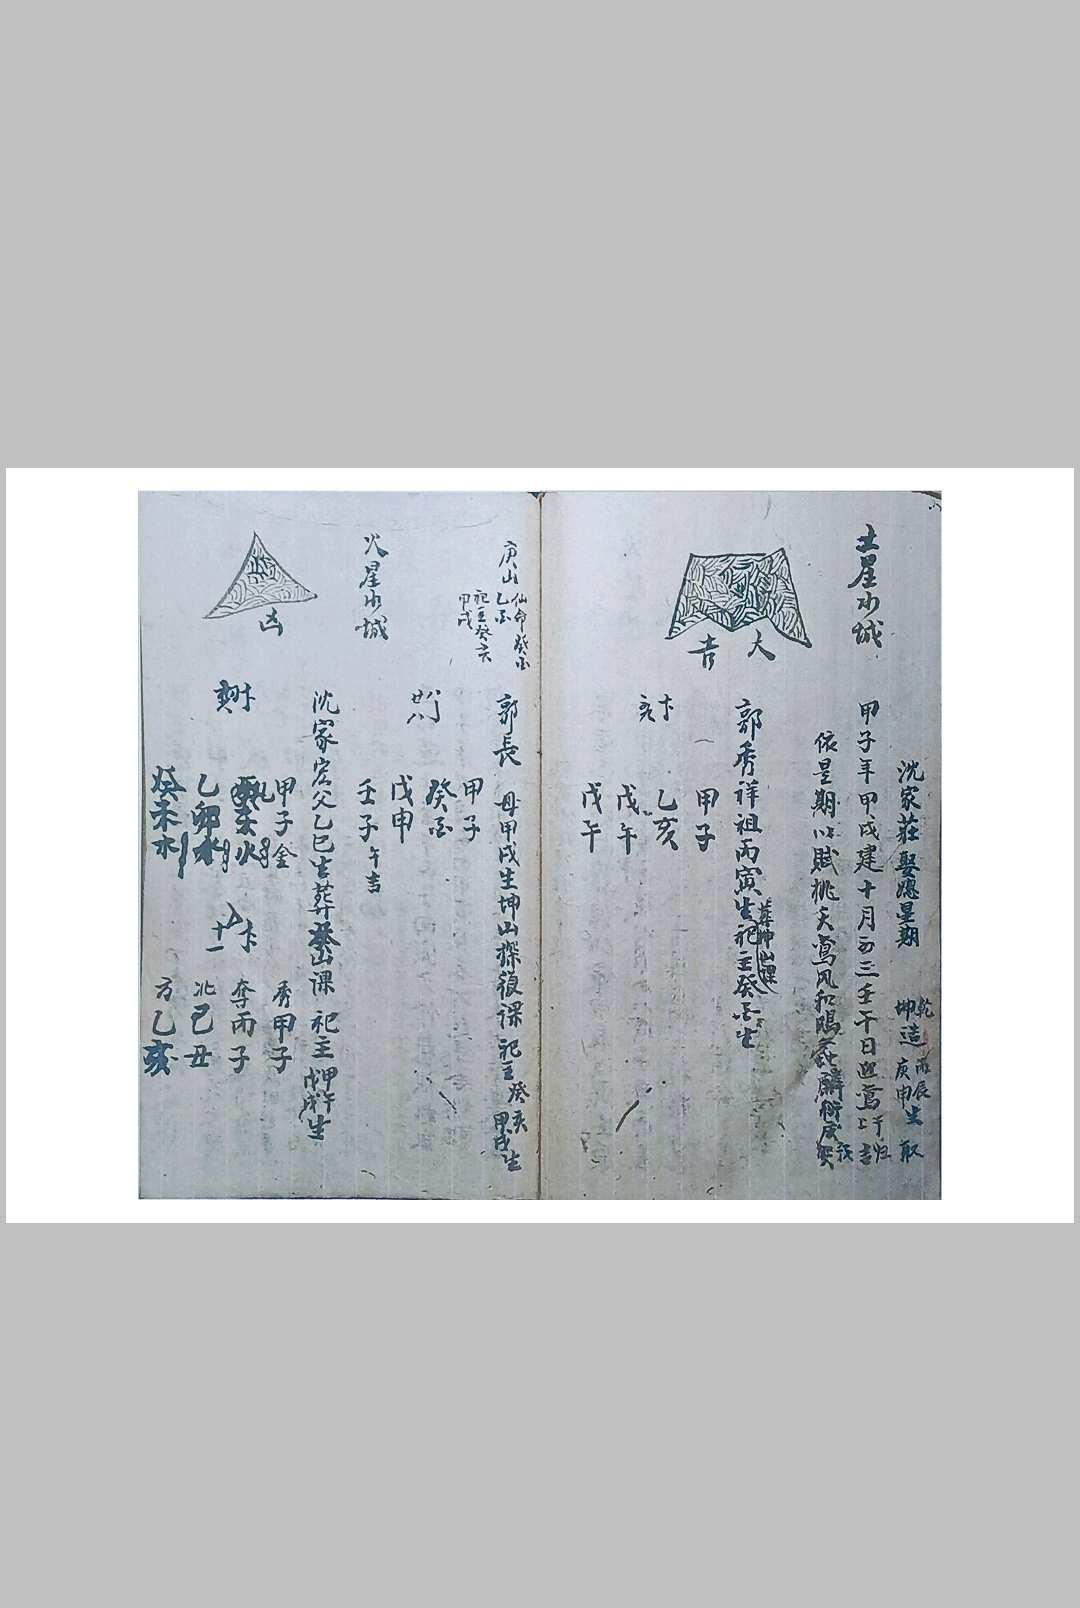 土星水城
大吉
沈家莊娶媳星期
乾 丙辰
坤造 庚申生 取
甲子年甲戌建十月初三壬午日迎鸞 上吉 于归
依星期以賦桃夭鸾风和
郭秀祥祖丙寅生 祀主癸酉生
葬坤山課
甲子
乙亥
戊午
戊午
庚山
仙命癸酉
乙酉
祀主癸亥
甲戌
郭長 母甲戌生坤山探復课 祀主癸亥 甲戌生
甲子
癸酉
戊申
壬子 午吉
火星水城
凶
沈家宏父乙巳生葬 山課 祀主甲午 戊戌生
甲子金
火
乙卯水
癸未水
十一
秀甲子
奪丙子
北己丑
方乙亥